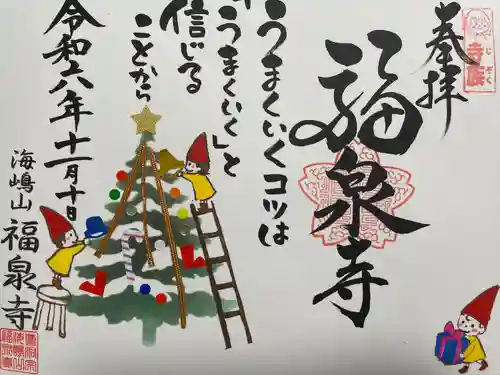 奉拝
寺族
じぞく
福泉寺
うまくいくコツは
「うまくいく」と
信じる
ことから
令和六年十一月十日
海嶋山
福泉寺